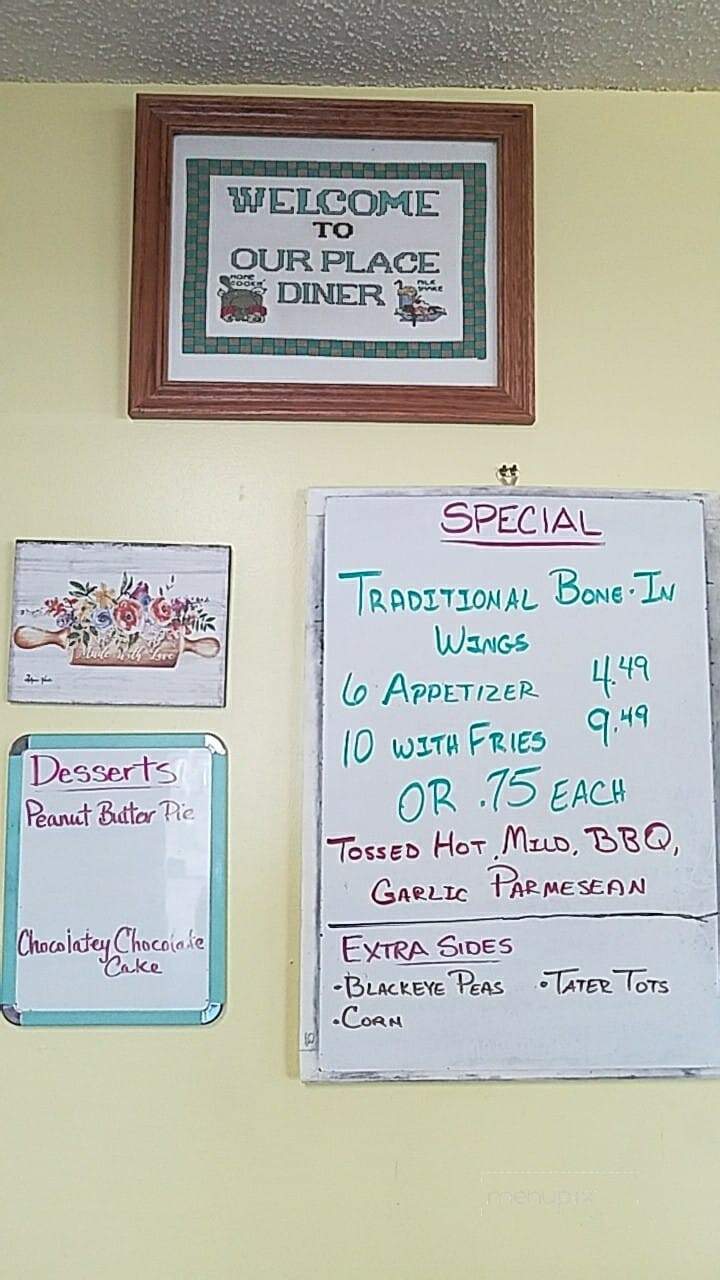 WELCOME
TO
OUR PLACE
DINER
HOME
COOKIN'
MILK
SHAKE
SPECIAL
TRADITIONAL BONE-IN
WINGS
6 APPETIZER 4.49
10 WITH FRIES 9.49
OR .75 EACH
TOSSED HOT, MILD, BBQ,
GARLIC PARMESEAN
EXTRA SIDES
•BLACKEYE PEAS •TATER TOTS
•CORN
Made with Love
Desserts
Peanut Butter Pie
Chocolatey Chocolate
Cake
menupix